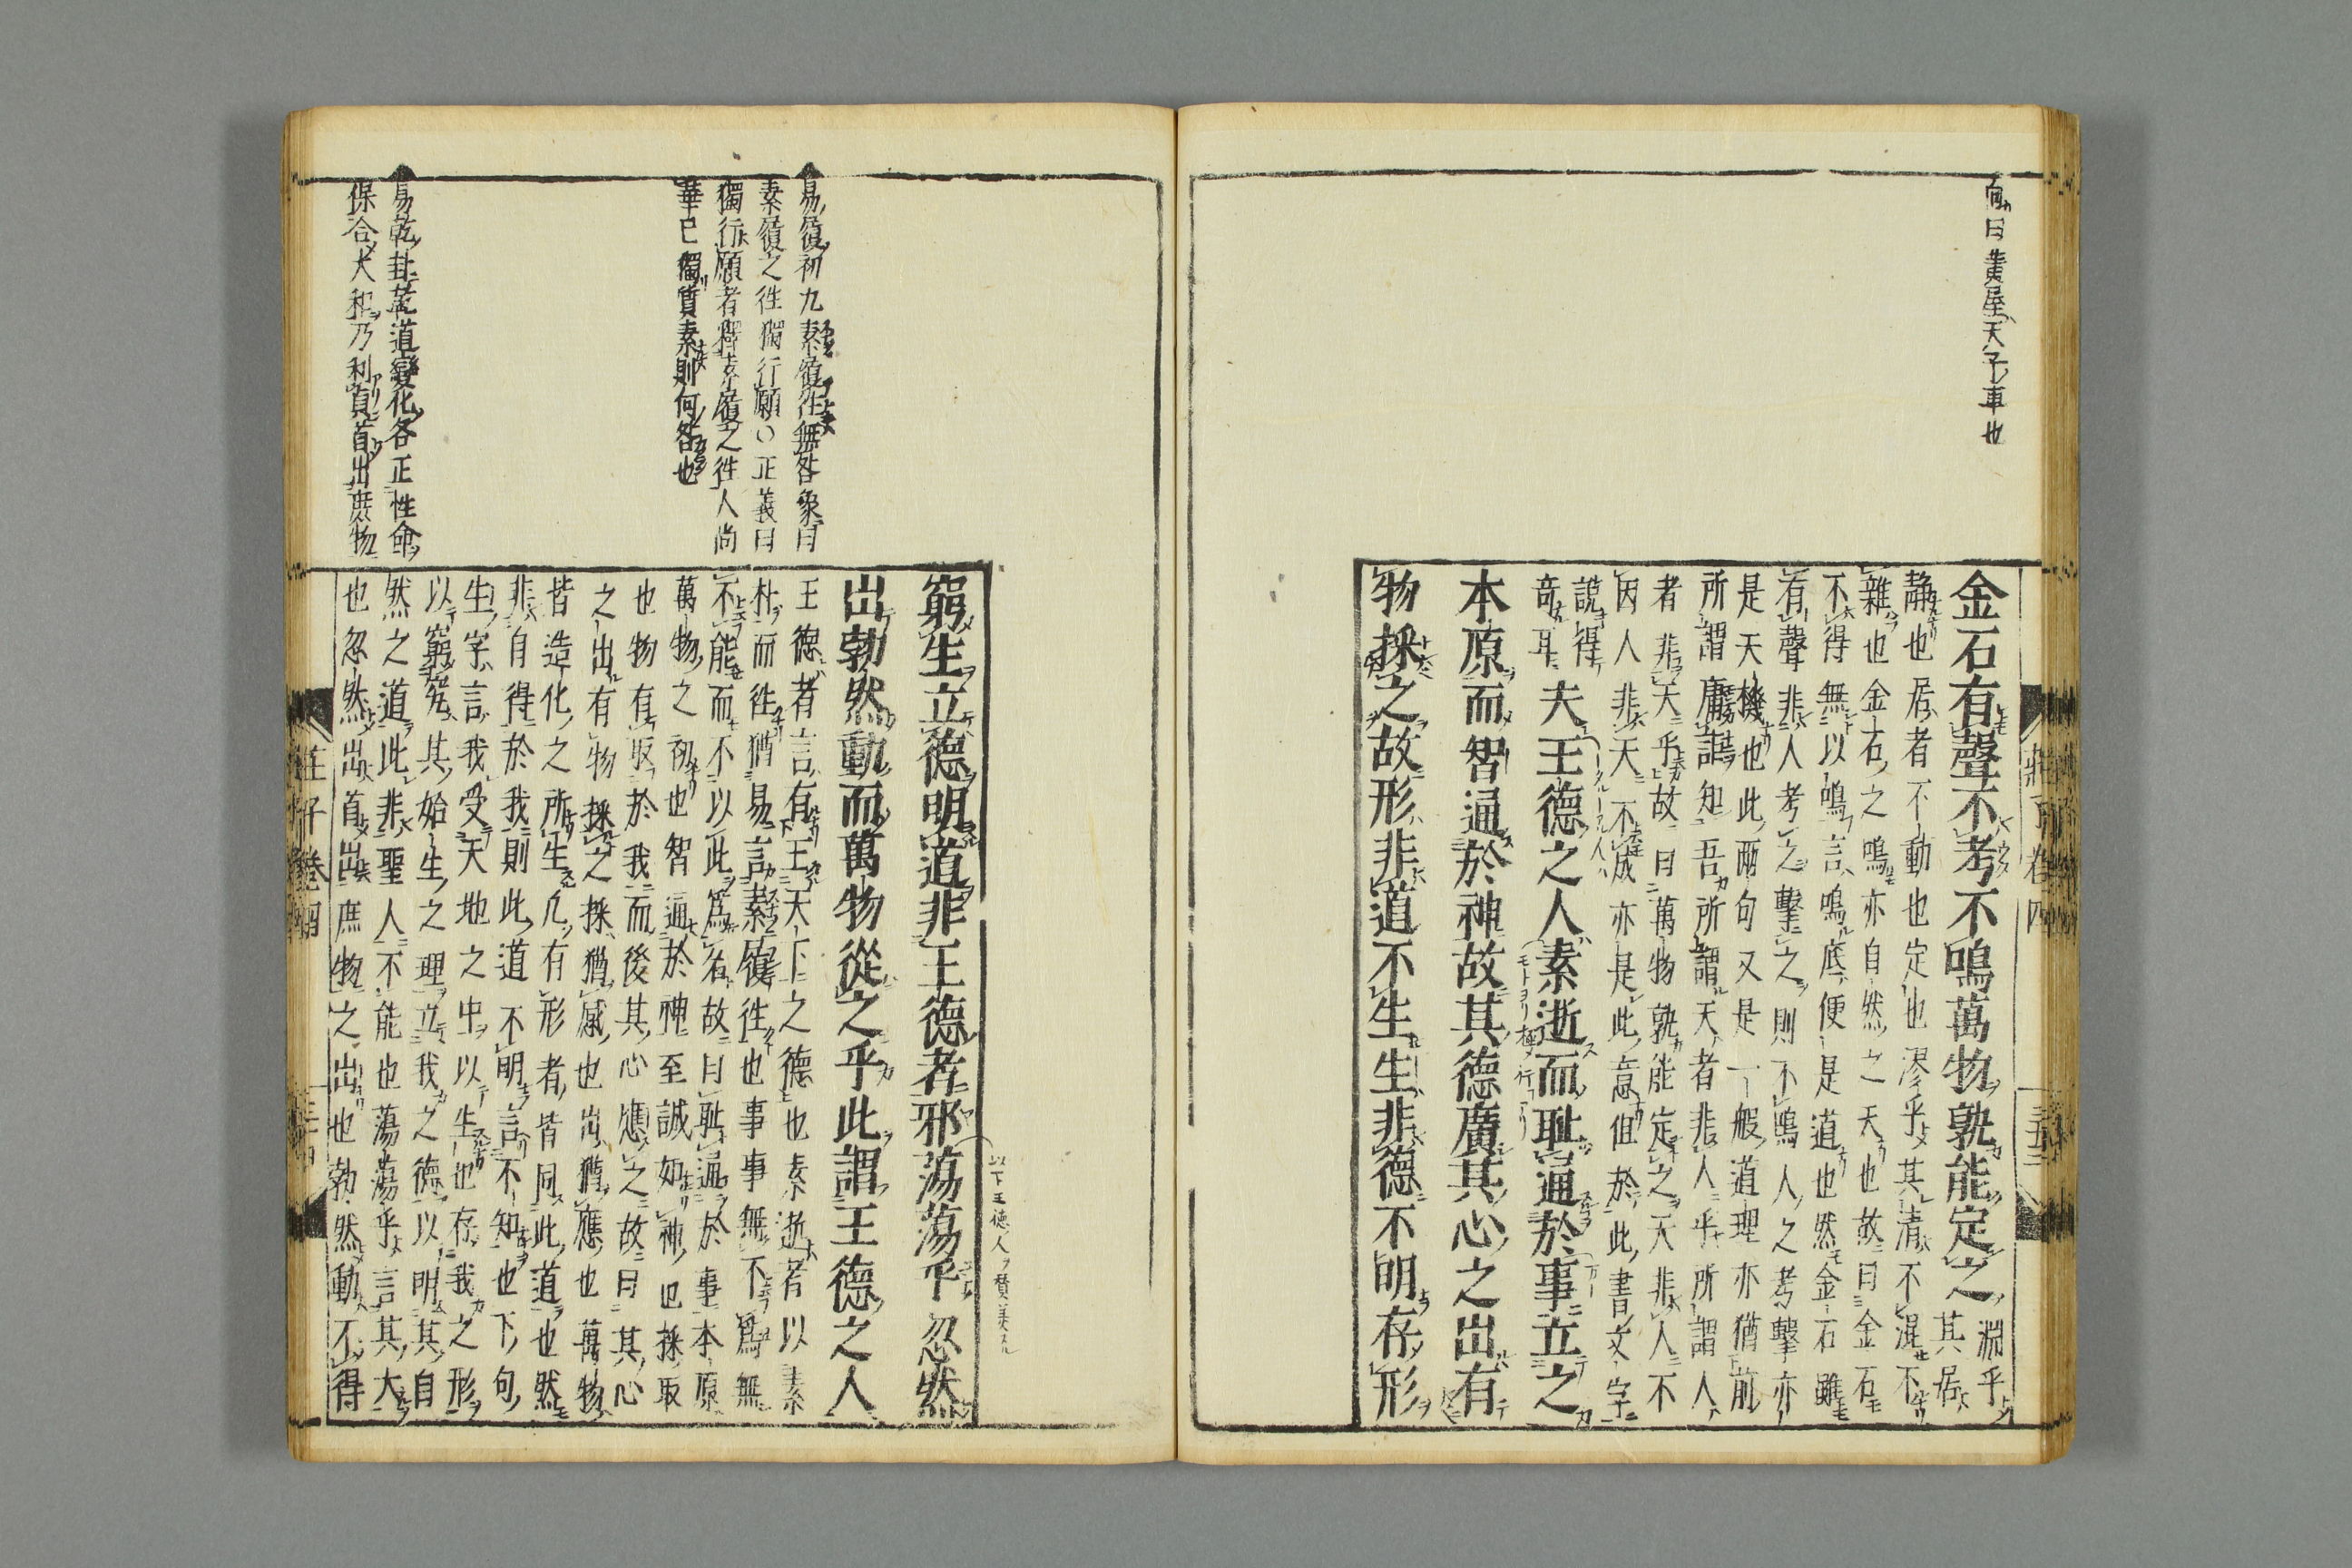 向曰黄屋天子車也
金石有聲不考不鳴萬物孰能定之
淵乎
其居
靜也居者不動也定也漻乎其清不混不
雜也金石之鳴亦自然之天也故曰金石
不得無以鳴言鳴底便是道也然金石雖
有聲非人考之擊之則不鳴人之考擊亦
是天機也此兩句又是一般道理亦猶前
所謂庸詎知吾所謂天者非人乎所謂人
者非天乎故曰萬物孰能定之天非人不
因人非天不成亦是此意但於此書文字
說得
奇耳
夫王德之人素逝而恥通於事立之
本原而智通於神故其德廣其心之出有
物採之故形非道不生生非德不明存形
莊子卷四
窮生立德明道非王德者邪蕩蕩乎忽然
以下王德人ヲ賛美スル
出勃然動而萬物從之乎此謂王德之人
王德者言有王天下之德也素逝者以素
朴而徃猶易言素履徃也事事無不爲無
不能而不以此爲名故曰恥通於事本原
萬物之初也智通於神至誠如神也採取
也物有取於我而後其心應之故曰其心
之出有物採之採猶感也出猶應也萬物
皆造化之所生凡有形者皆同此道也然
非自得於我則此道不明言不知也下句
生字言我受天地之中以生也存我之形
以窮究其始生之理立我之德以明其自
然之道此非聖人不能也蕩蕩乎言其大
也忽然出首出庶物之出也勃然動不得
易履初九素履徃無咎象曰
素履之徃獨行願○正義曰
獨行願者釋素履之徃人尚
華已獨質素則何咎也
易乾卦乾道變化各正性命
保合大和乃利貞首出庶物
莊子卷四